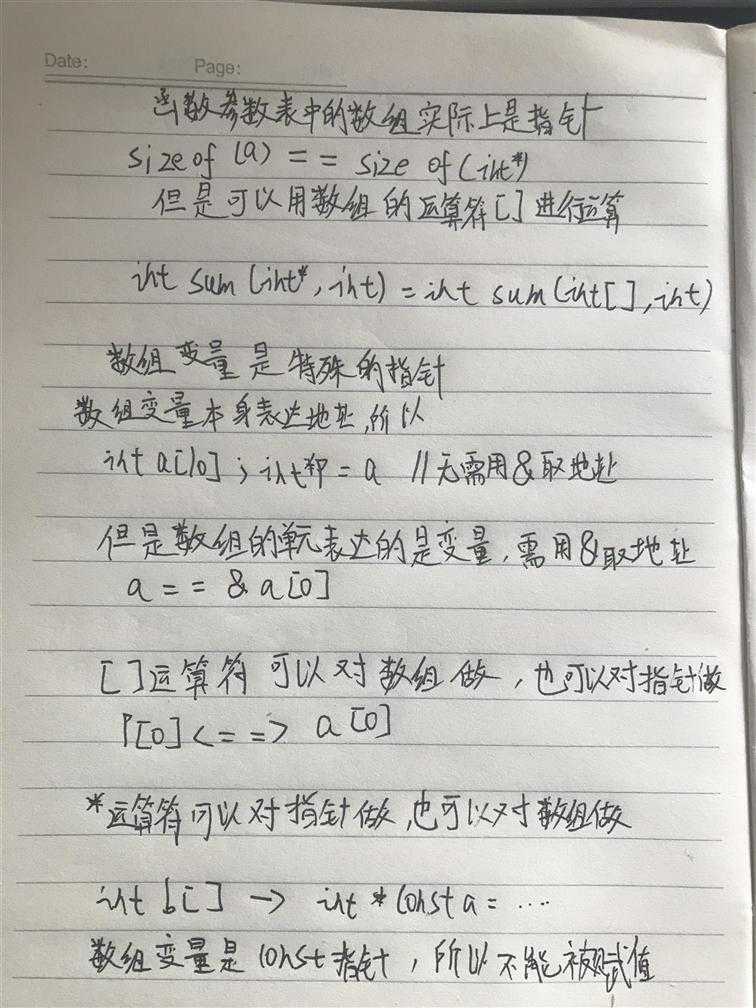 Date:
Page:
函数参数表中的数组实际上是指针
sizeof (a) == size of (int*)
但是可以用数组的运算符[]进行运算
int sum (int*, int) = int sum (int[], int)
数组变量是特殊的指针
数组变量本身表达地址,所以
int a[10]; int*p = a //无需用&取地址
但是数组的单元表达的是变量,需用&取地址
a == &a[0]
[]运算符可以对数组做,也可以对指针做
P[0] <==> a[0]
*运算符可以对指针做,也可以对数组做
int b[] -> int * const a = ....
数组变量是const指针,所以不能被赋值